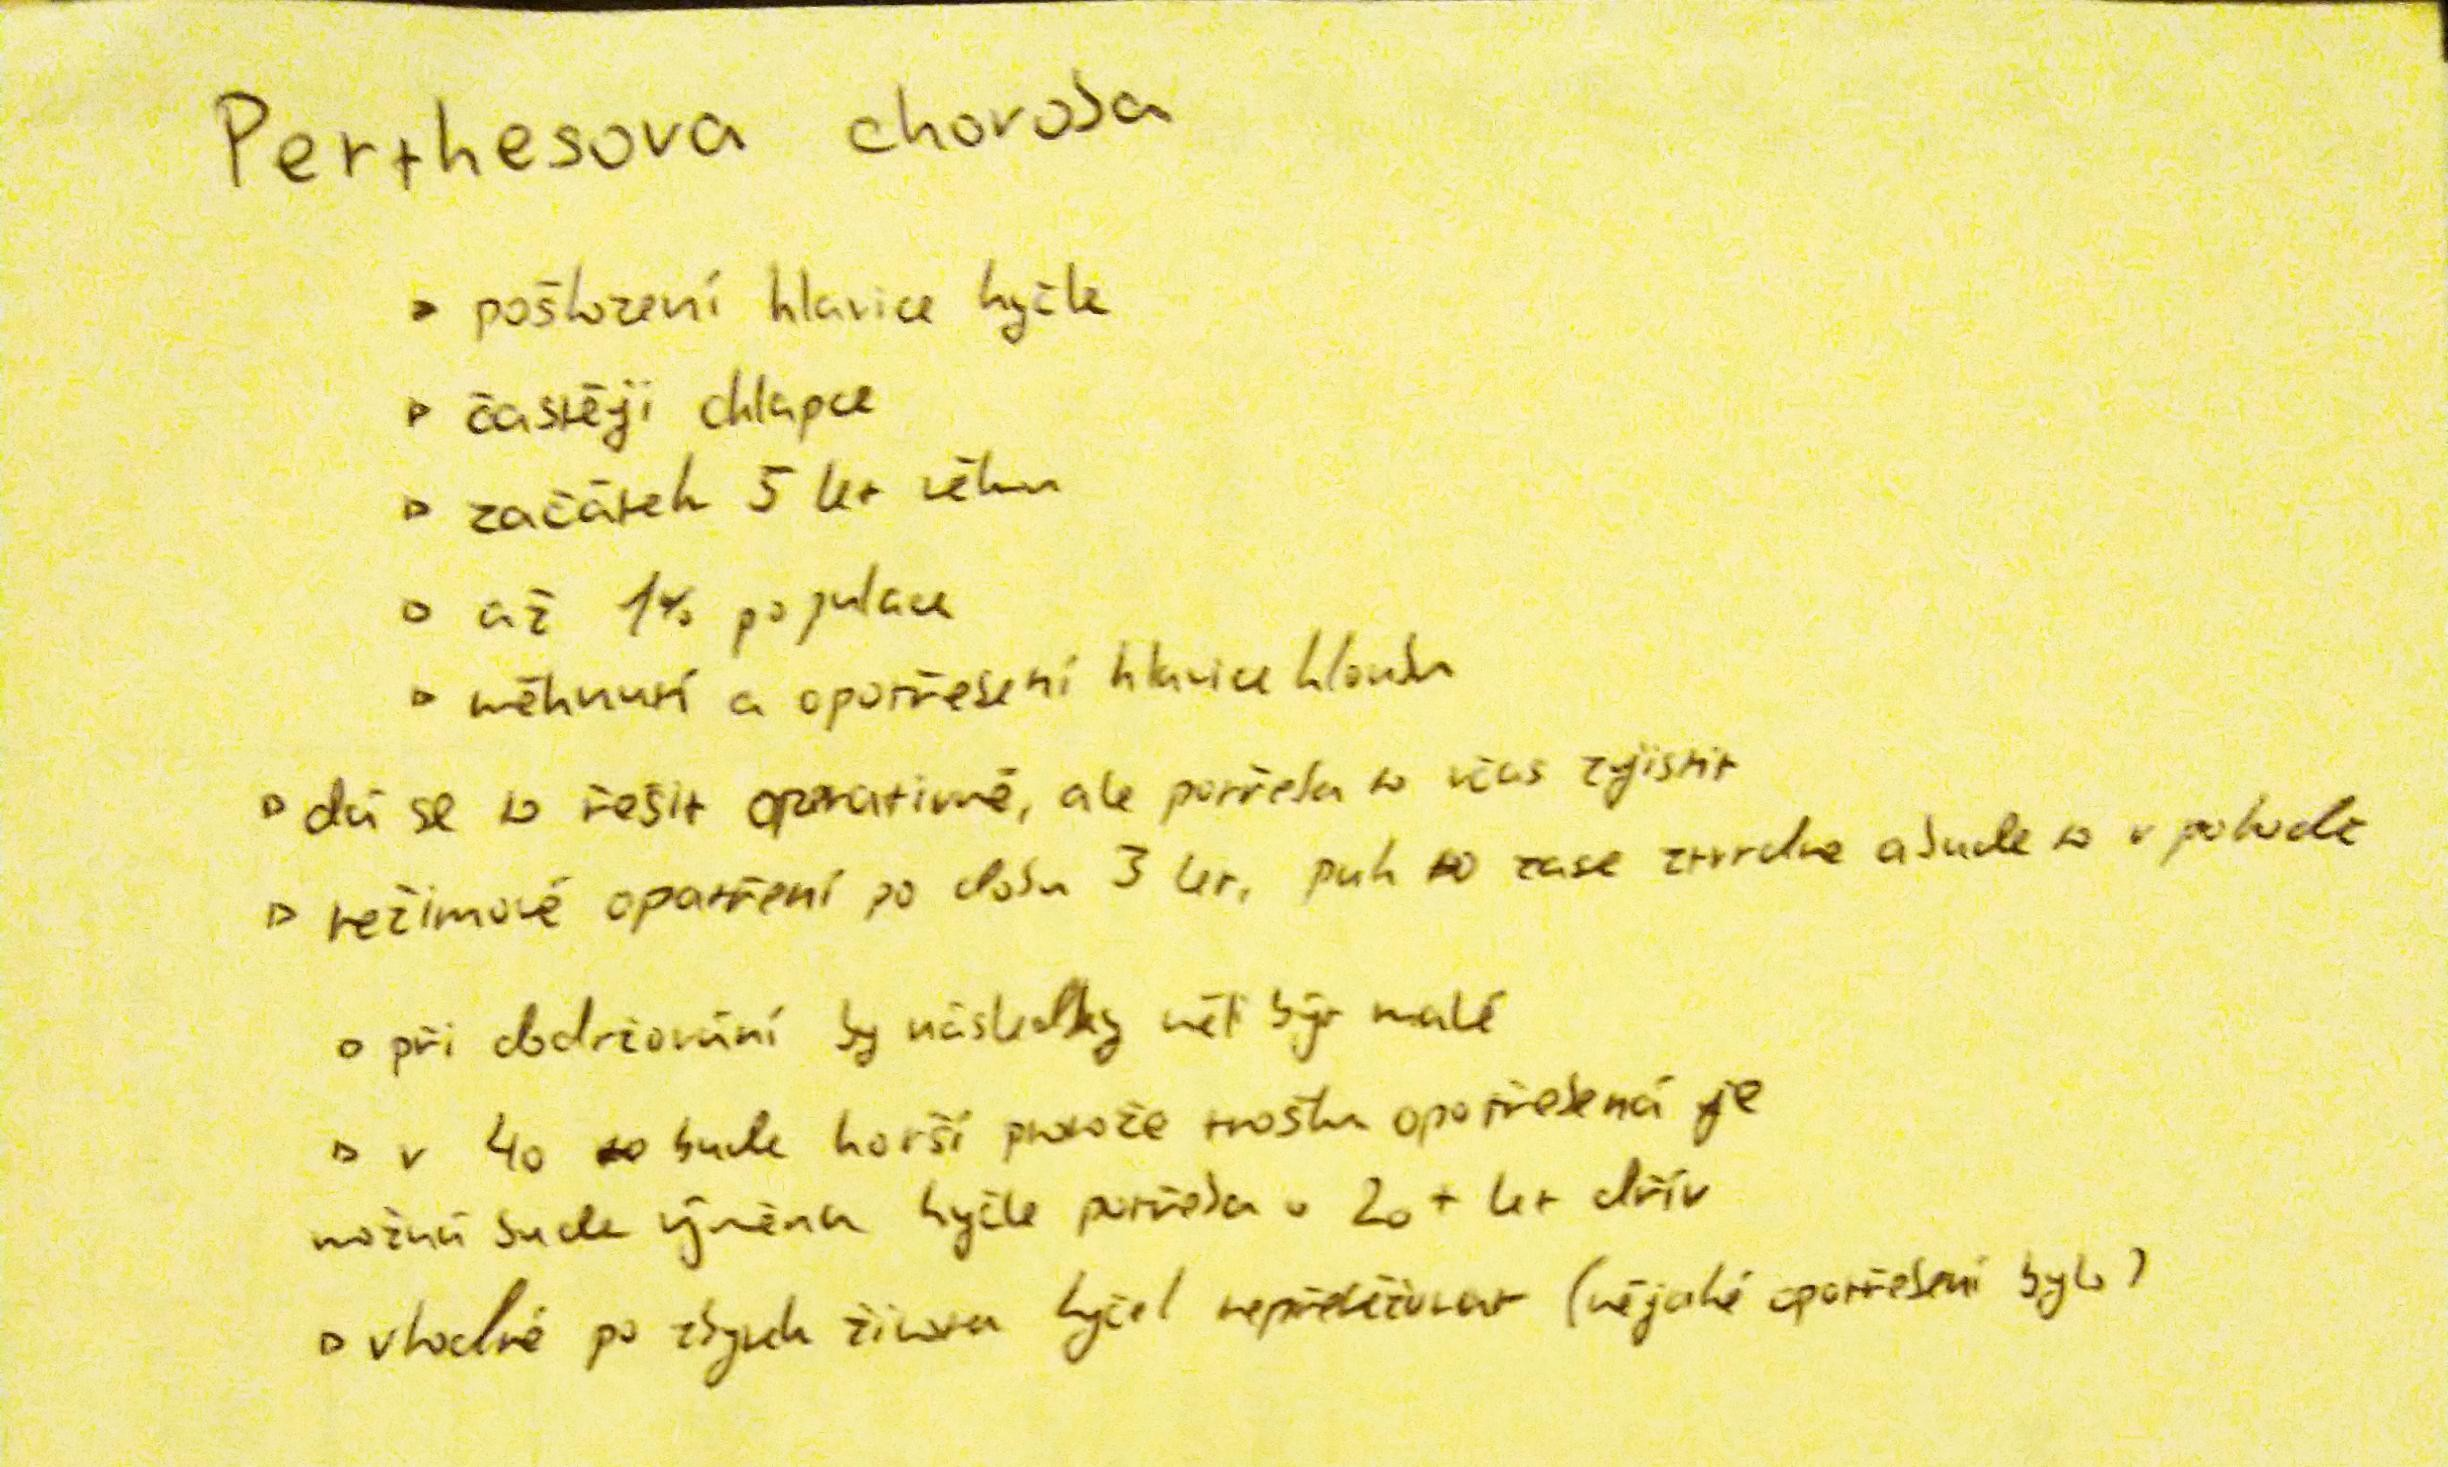 Perthesova choroba
▹ poškození hlavice kyčle
▹ častěji chlapce
▹ začátek 5 let věku
▹ až 1% populace
▹ měknutí a opotřebení hlavice kloubu
▹ dá se to řešit operativně, ale potřeba to včas zjistit
▹ režimové opatření po dobu 3 let, pak to zase ztvrdne a bude to v pohodě
▹ při dodržování by následky měli být malé
▹ v 40 to bude horší protože trošku opotřebená je
možná bude výměna kyčle potřeba o 20+ let dřív
▹ vhodné po zbytek života kyčel nepřetěžovat (nějaké opotřebení bylo)